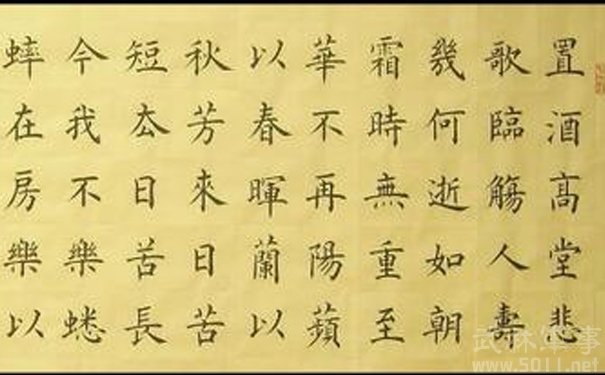 置酒高堂悲
歌臨觴人壽
幾何逝如朝
霜時無重至
華不再陽蘋
以春暉蘭以
秋芳來日苦
短厺日苦長
今我不樂蟋
蟀在房樂以
www.5011.net